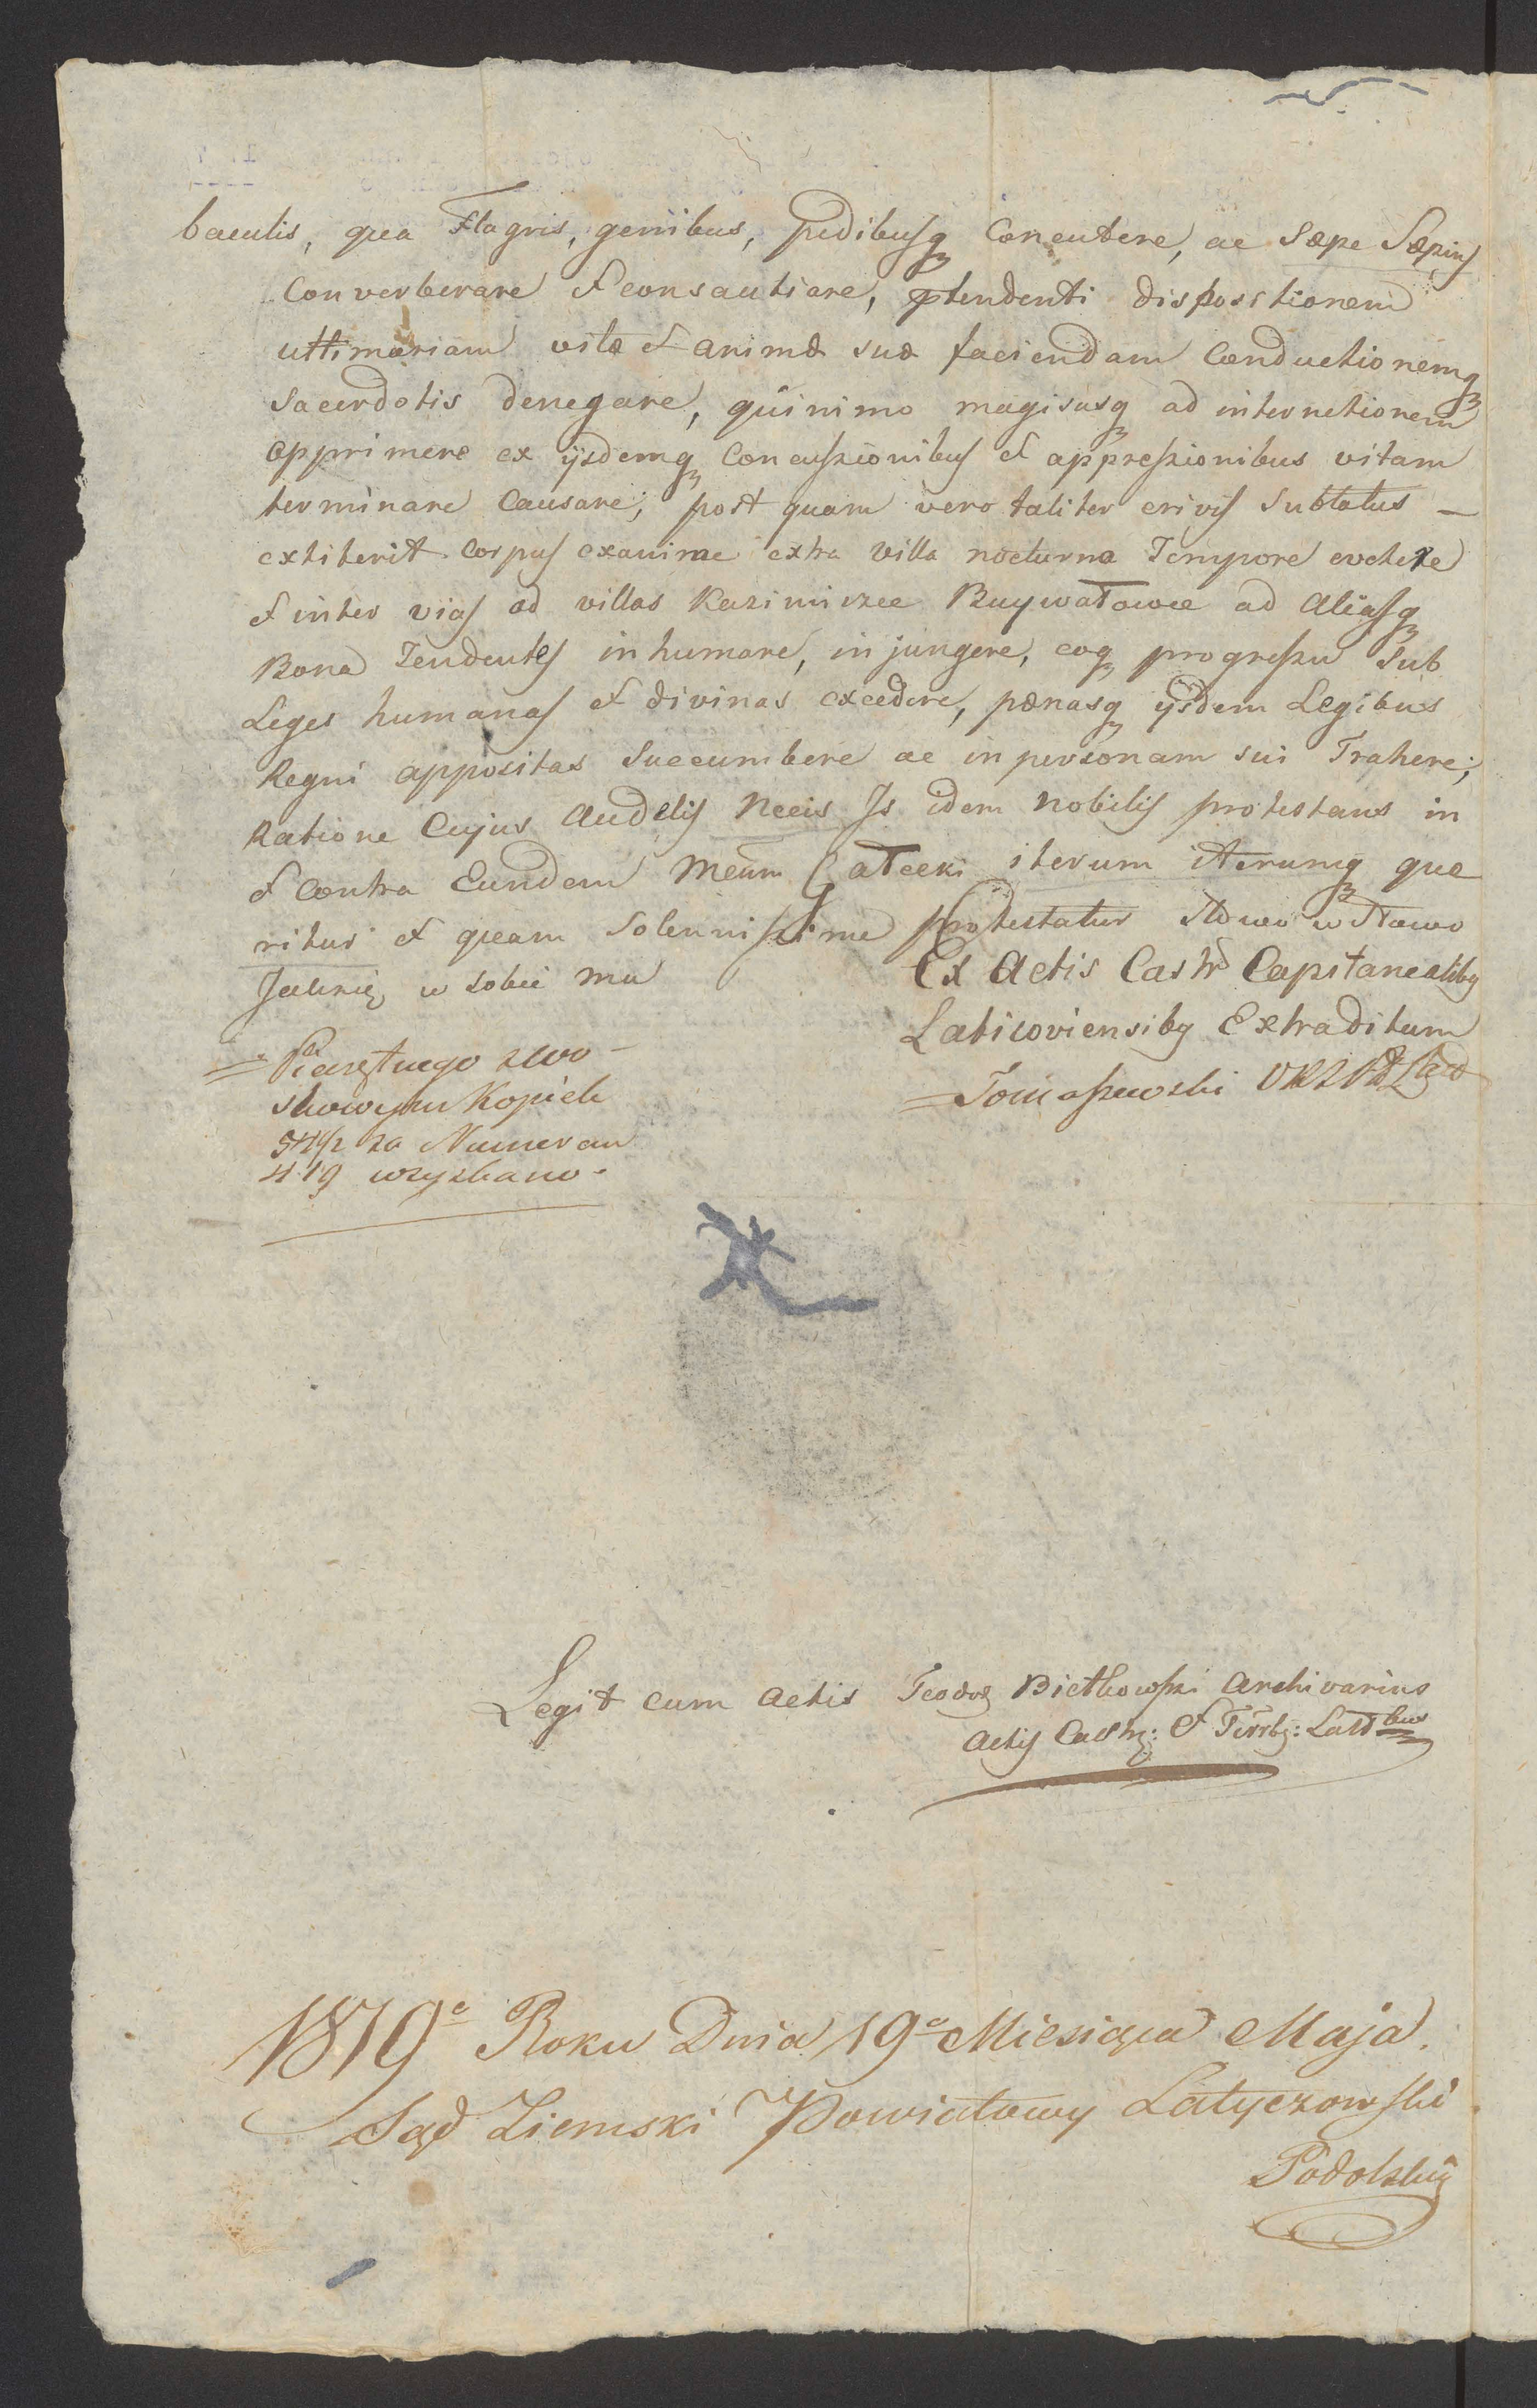 baculis, qua Flagris, genibus, pedibusq Concutere, ac Sæpe Sæpius
Converberare et consautiare, ptendenti dispositionem
ultimariam vitæ et animæ suæ faciendam Conductionemq
Sacerdotis denegare, quinimo magisusq ad internetionem
opprimere ex ijsdemq Concussionibus et oppressionibus vitam
terminare Causare; post quam vero taliter erivis Sublatus –
extiterit corpus exanime extra villa nocturna Tempore evehere
et inter vias ad villas Kazimirzec Buywałowce ad Aliasq
Bona Tendentes inhumare, injungere, eoq progressu Sub
Leges humanas et divinas excedere, pænasq ijsdem Legibus
Regni appositas Succumbere ac in personam sui Trahere;
Ratione Cujus Audelis Necis Is idem nobilis protestans in
et Contra Eundem Meum Gałecki iterum iterumq que
ritur et quam Solennissime protestatur Słowo w Słowo
Jak się w sobie ma
Ex Actis Castr Capitanealibq
Laticoviensibq Extraditum
Tomaszewski
za Numeram
419
Legit cum Actis Teodor Bietkowski Archivarius
Actis Castr: et Terrbq: Latt bus
1819e Roku Dnia 19e Miesiąca Maja.
Sąd Ziemski Powiatowy Latyczowski
Podolskiy